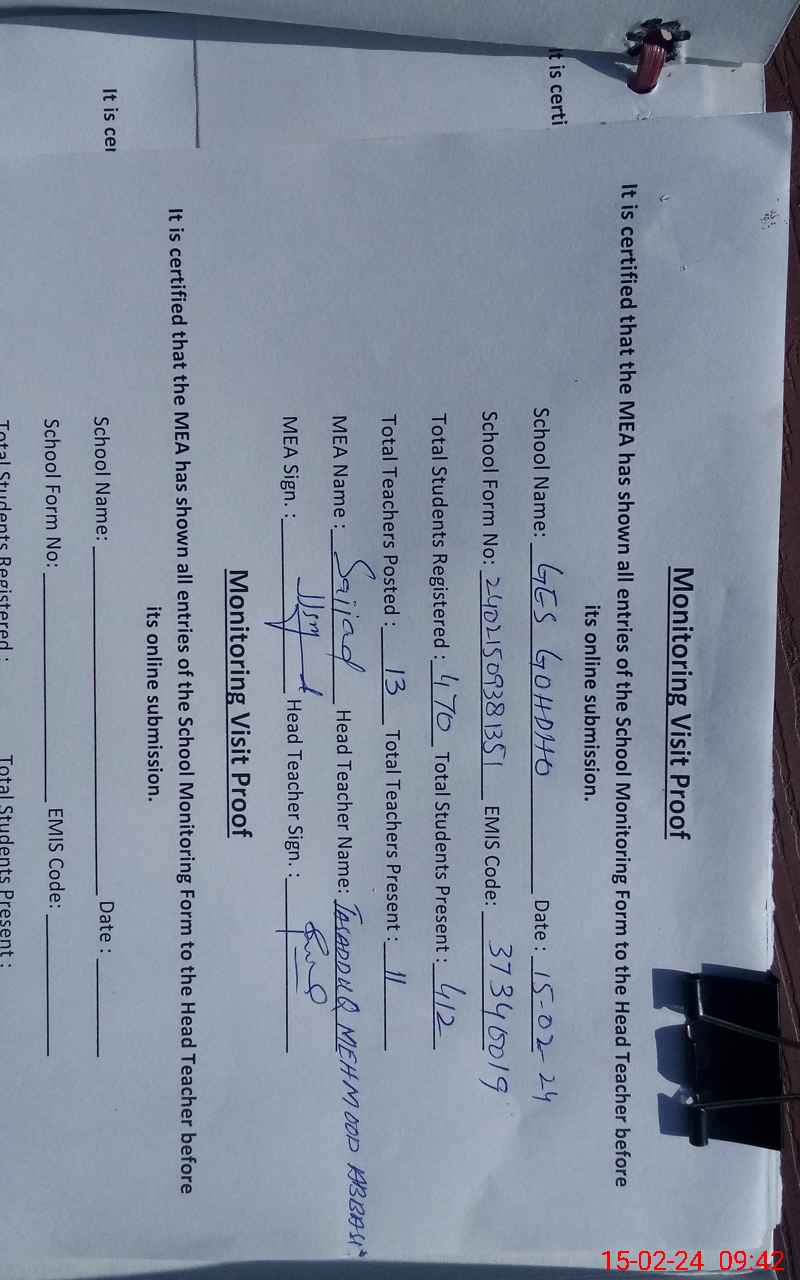 It is certi
It is cer
Monitoring Visit Proof
It is certified that the MEA has shown all entries of the School Monitoring Form to the Head Teacher before
its online submission.
School Name: GES GOHDHO Date : 15-02-24
School Form No: 24021509381351 EMIS Code: 37340019
Total Students Registered : 470 Total Students Present : 412
Total Teachers Posted : 13 Total Teachers Present : 11
MEA Name : Sajjad Head Teacher Name: TASADDUQ MEHMOOD ABBASI
MEA Sign. : Head Teacher Sign. :
Monitoring Visit Proof
It is certified that the MEA has shown all entries of the School Monitoring Form to the Head Teacher before
its online submission.
School Name: Date :
School Form No: EMIS Code:
Total Students Registered : Total Students Present :
15-02-24 09:42